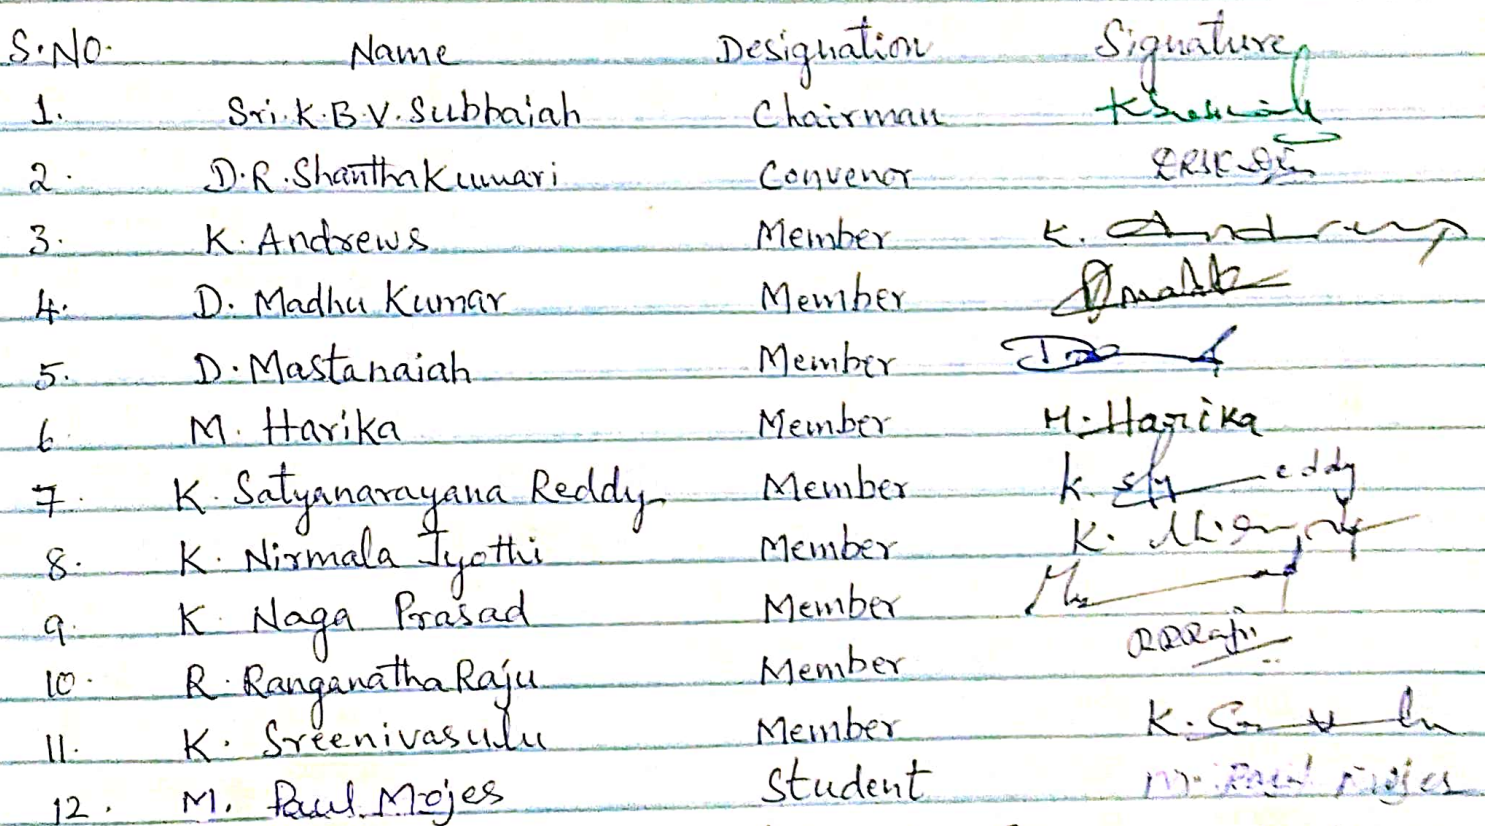 S.No. Name Designation Signature
1. Sri.K.B.V.Subbaiah Chairman
2. D.R.ShanthaKumari Convenor
3. K. Andrews Member K. Andrews
4. D. Madhu Kumar Member
5. D. Mastanaiah Member
6. M. Harika Member M. Harika
7. K. Satyanarayana Reddy Member K.
8. K. Nirmala Jyothi Member K.
9. K. Naga Prasad Member
10. R. Ranganatha Raju Member RRRaju
11. K. Sreenivasulu Member K.
12. M. Paul Mojes Student M. Paul Mojes